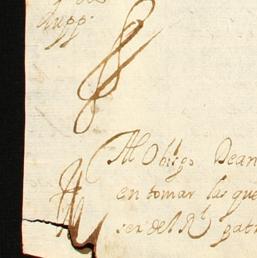 dupp.
Al Obispo Dean
en tomar las que
ser del Rl patr